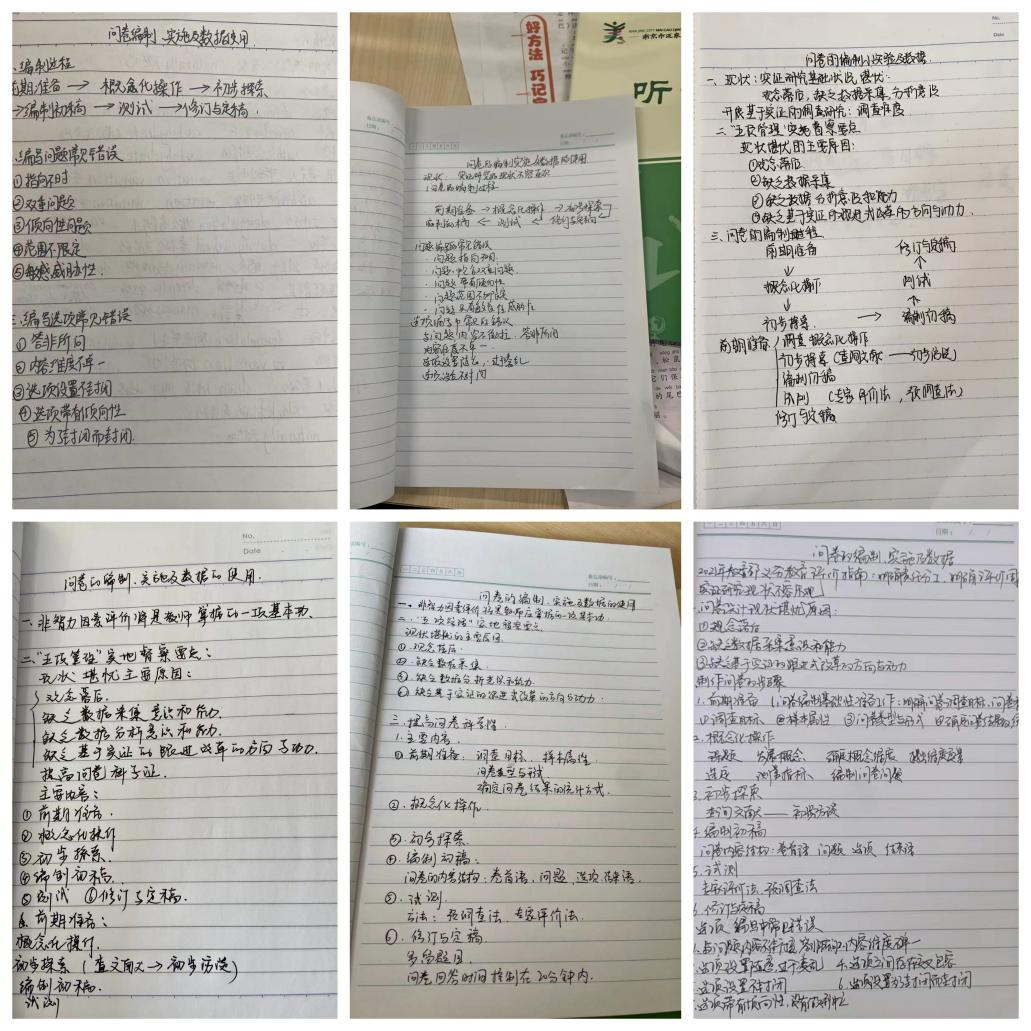 问卷编制、实施及数据使用
一.编制过程
前期准备 → 概念化操作 → 初步探索
→编制初稿 → 测试 → 修订与定稿.
二.编写问题常见错误
①指向不明
②双重问题
③倾向性问题
④范围不限定
⑤敏感威胁性.
三.编写选项常见错误
①答非所问
②内容维度不单一
③选项设置不封闭
④选项带有倾向性
⑤为了封闭而封闭.
好方法 巧记
听
备忘录编号:
日期:
问卷的编制实施及数据的使用
现状: 实证研究的现状不容乐观
问卷的编制过程
前期准备 → 概念化操作 → 初步探索
编制初稿 测试 修订与定稿
问题编写的常见错误
·问题指向不明.
·问题包含双重问题.
·问题带有倾向性
·问题范围不限定
选项编写中常见的错误
与问题内容不衔接, 答非所问
内容维度不单一
No.
Date
问卷的编制、实施及数据
一、现状:实证研究基础状况堪忧.
观念落后,缺乏数据采集、分析意识
开展基于实证的调查研究:调查维度
二、“五项管理”实地督察要点
现状堪忧的主要原因:
①观念落后
②缺乏数据采集
③缺乏数据分析意识和能力
④缺乏基于实证的跟进式改革的方向与动力.
三、问卷的编制过程
前期准备 修订与定稿
↓ ↑
概念化操作 测试
↓ ↑
初步探索 → 编制初稿
前期准备 调查概念化操作
初步探索(查阅文献 → 初步访谈)
编制初稿
试测 (专家评价法,预调查法)
修订与定稿
No.
Date
问卷的编制、实施及数据的使用.
一、非智力因素评价将是教师掌握的一项基本功.
二、“五项管理”实地督察要点:
现状堪忧主要原因:
观念落后.
缺乏数据采集意识和能力.
缺乏数据分析意识和能力.
缺乏基于实证的跟进改革的方向与动力.
提高问卷科学性.
主要内容:
①前期准备.
②概念化操作
③初步探索.
④编制初稿.
⑤测试 ⑥修订与定稿.
前期准备:
概念化操作.
初步探索(查文献→初步访谈)
编制初稿.
试测
一二三四五六日
备忘录编号:
日期:
问卷的编制、实施及数据的使用
一、非智力因素评价将是教师应掌握的一项基本功.
二、“五项管理”实地督察要点
现状堪忧的主要原因.
①.观念落后.
②.缺乏数据采集.
③.缺乏数据分析意识和能力.
④.缺乏基于实证的跟进式改革的方向与动力.
三.提高问卷科学性.
1.主要内容.
①前期准备: 调查目标、样本属性
问卷类型与形式
确定问卷结果的统计方式.
②.概念化操作.
③.初步探索.
④.编制初稿:
问卷的内容结构:卷首语、问题、选项、结束语.
⑤.试测.
方法: 预调查法、专家评价法.
⑥.修订与定稿.
问卷回答时间控制在20分钟内.
一二三四五六日
日期: / /
问卷的编制、实施及数据
2021年教育部义务教育评价指南:明确责任分工,明确评价
实证研究现状不容乐观
问卷设计现状堪忧原因:
①观念落后
②缺乏数据采集意识和能力
③缺乏基于实证的跟进式改革的方向与动力
制作问卷的步骤
①调查目标、②样本属性 ③问卷类型与形式
2.概念化操作
选项 测量指标、编制问卷问题
3.初步探索
查阅文献 —— 初步访谈
4.编制初稿
问卷内容结构:卷首语 问题 选项 结束语
5.试测
专家评价法、预调查法
6.修订与定稿
选项编写中常见错误
6.选项设置为了封闭而封闭